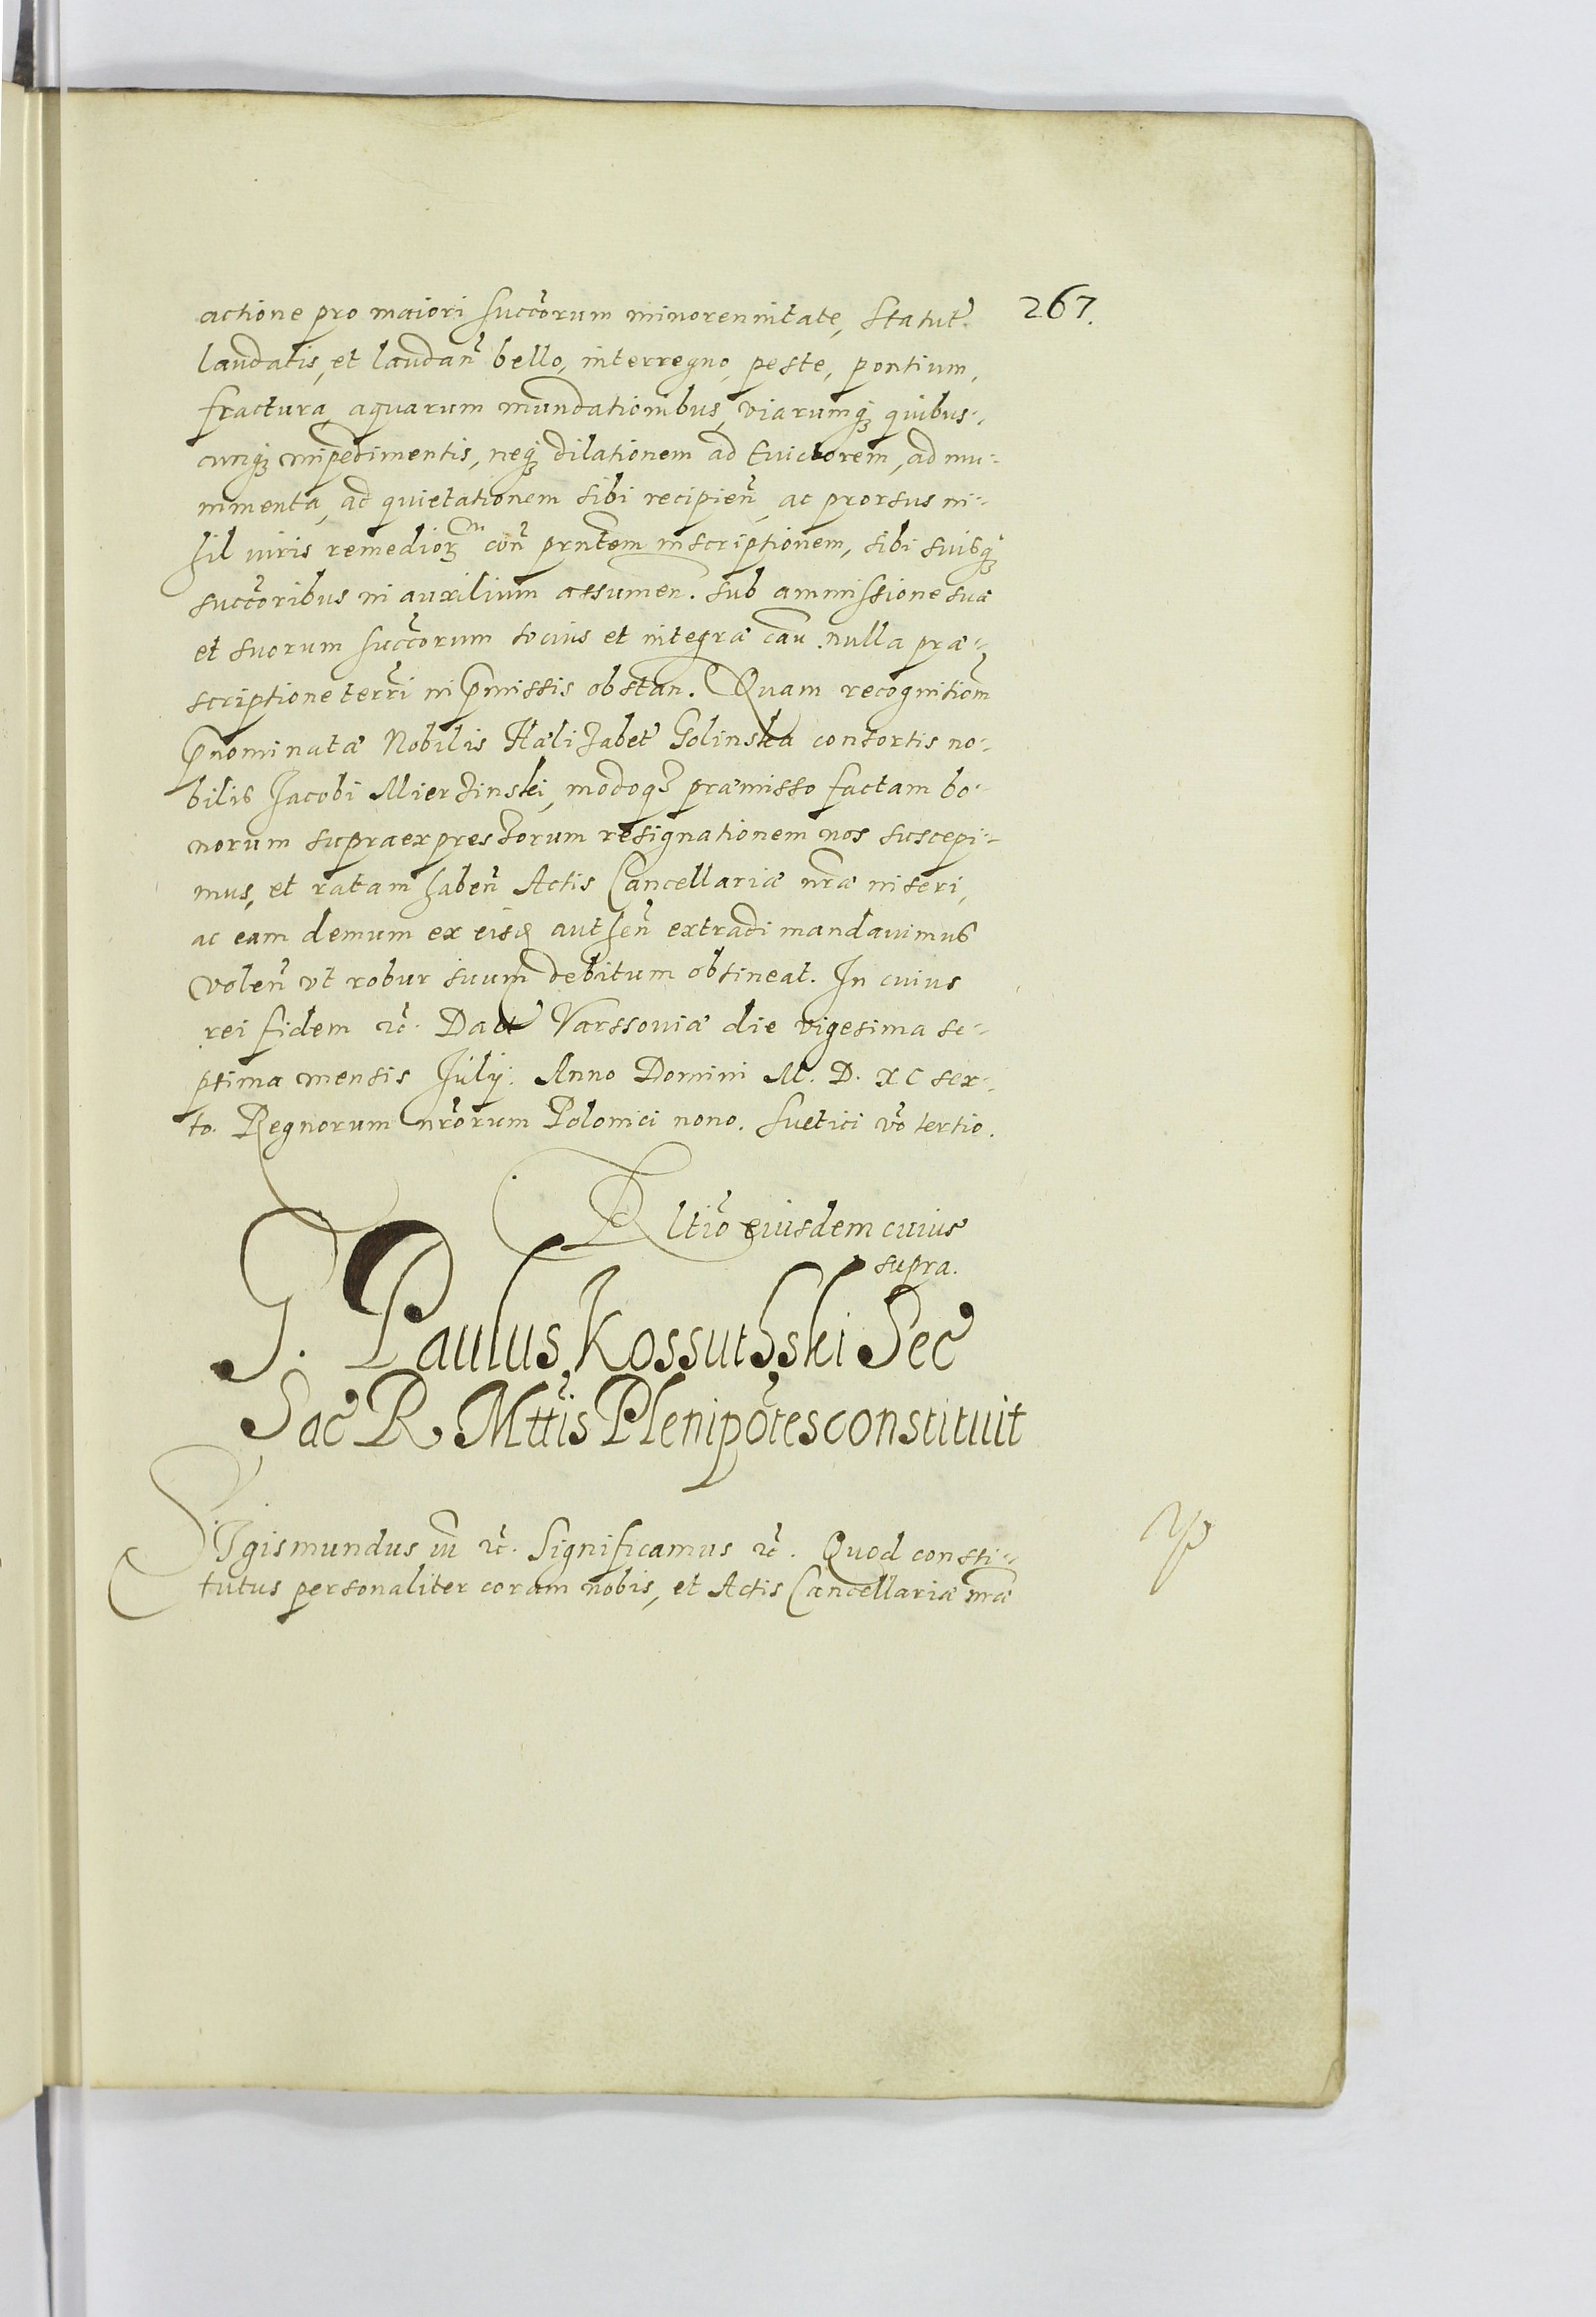 267.
actione pro maiori succ̃orum minorennitate, statut̃.
laudatis, et laudañ bello, interregno, peste, pontium,
fractura, aquarum inundationibus, viarumq; quibus-
cunq; impedimentis, neq; dilationem ad Evictorem, ad mu-
nimenta, ad quietationem sibi recipieñ, ac prorsus ni-
hil iuris remediorum coñ prñtem inscriptionem, sibi suisq;
succ̃oribus in auxilium assumen. sub ammissione suæ
et suorum succ̃orum tocius et integræ cau. nulla præ-
scriptione terr̃i in p̃missis obstan. Quam recognitiom̃
p̃nominatæ Nobilis Hælizabet̃ Golinska consortis no-
bilis Jacobi Mierzinski, modoq; præmisso factam bo-
norum supraexpressorum resignationem nos suscepi-
mus, et ratam habeñ Actis Cancellariæ nr̃æ inseri,
ac eam demum ex eisd autheñ extradi mandavimus
voleñ vt robur suum debitum obtineat. In cuius
rei fidem ⁊c̃. Dat̃ Varssoviæ die vigesima se-
ptima mensis Julij. Anno Domini M. D. XC sex-
to. Regnorum nr̃orum Polonici nono. Suetici vo̊ tertio.
Rltio̊ eiusdem cuius
supra.
G. Paulus Kossuthski Sec̃
Sac̃ R. Mttis Plenipõtes constituit
SIgismundus iii ⁊c̃. Significamus ⁊c̃. Quod consti-
tutus personaliter coram nobis, et Actis Cancellariæ nr̃æ